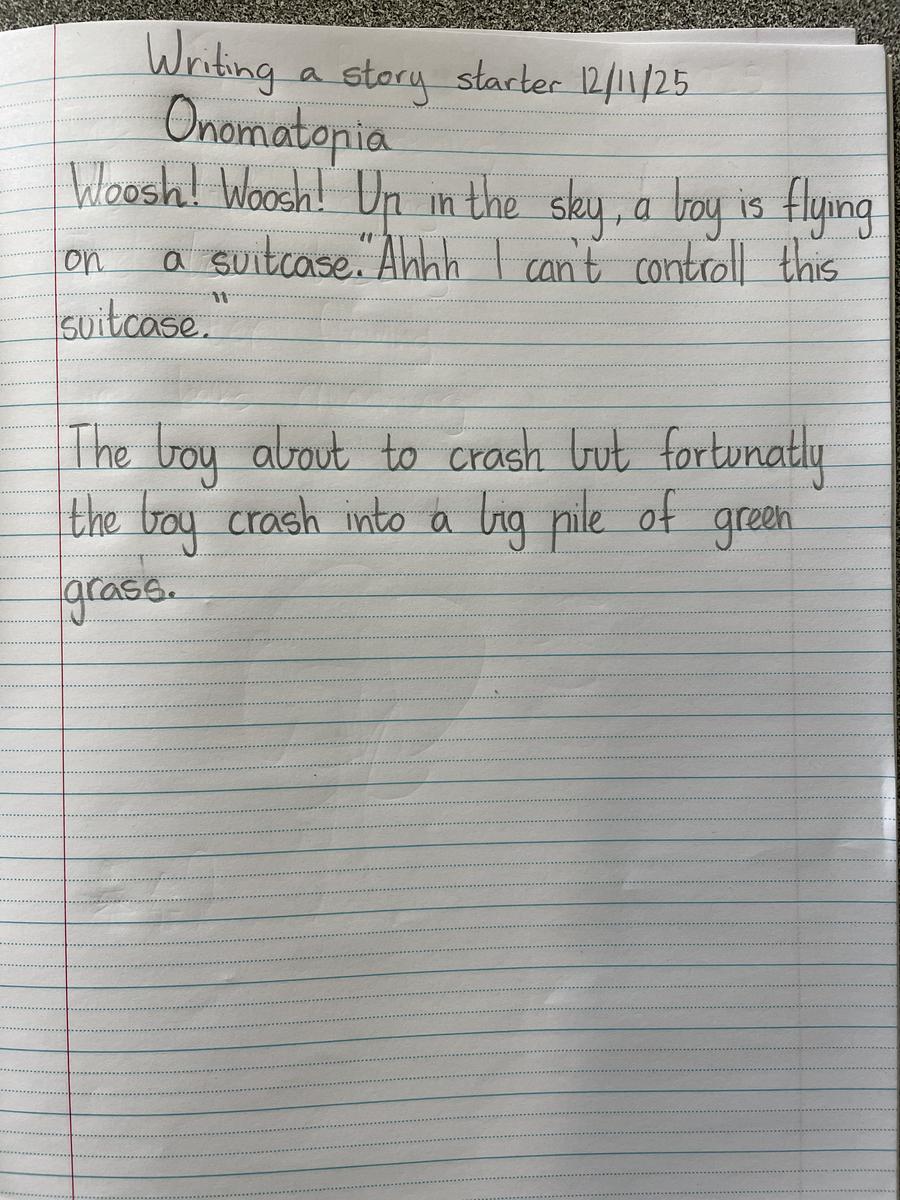 Writing a story starter 12/11/25
Onomatopia
Woosh! Woosh! Up in the sky, a boy is flying
on a suitcase. "Ahhh I can't controll this
suitcase."
The boy about to crash but fortunatly
the boy crash into a big pile of green
grass.